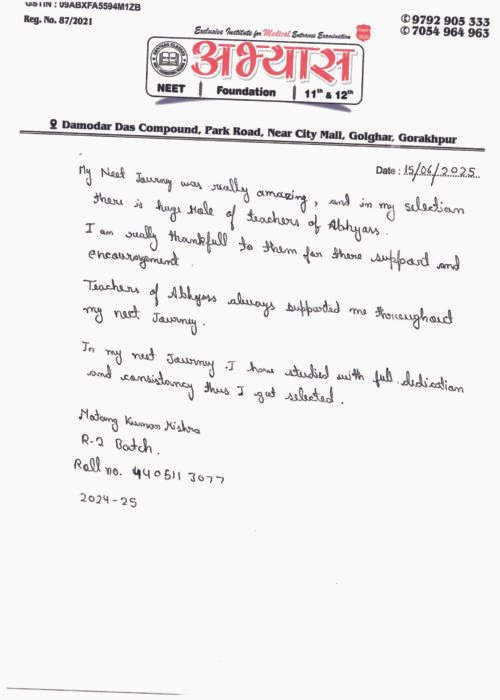 GSTIN : 09ABXFA5594M1ZB
Reg. No. 87/2021
Exclusive Institute for Medical Entrance Examination
9792 905 333
7054 964 963
अभ्यास
NEET | Foundation | 11th & 12th
Damodar Das Compound, Park Road, Near City Mall, Golghar, Gorakhpur
Date : 15/06/2025
My Neet Journy was really amazing, and in my selection
there is huge Role of teachers of Abhyass.
I am really thankfull to them for there support and
encouragement.
Teachers of Abhyass always supported me thoroughout
my neet Jawrney.
In my neet Jawrney .I have studied with full dedication
and consistancy thus I got selected.
Matang Kumar Mishra
R-2 Batch.
Roll no. 4405113077
2024-25